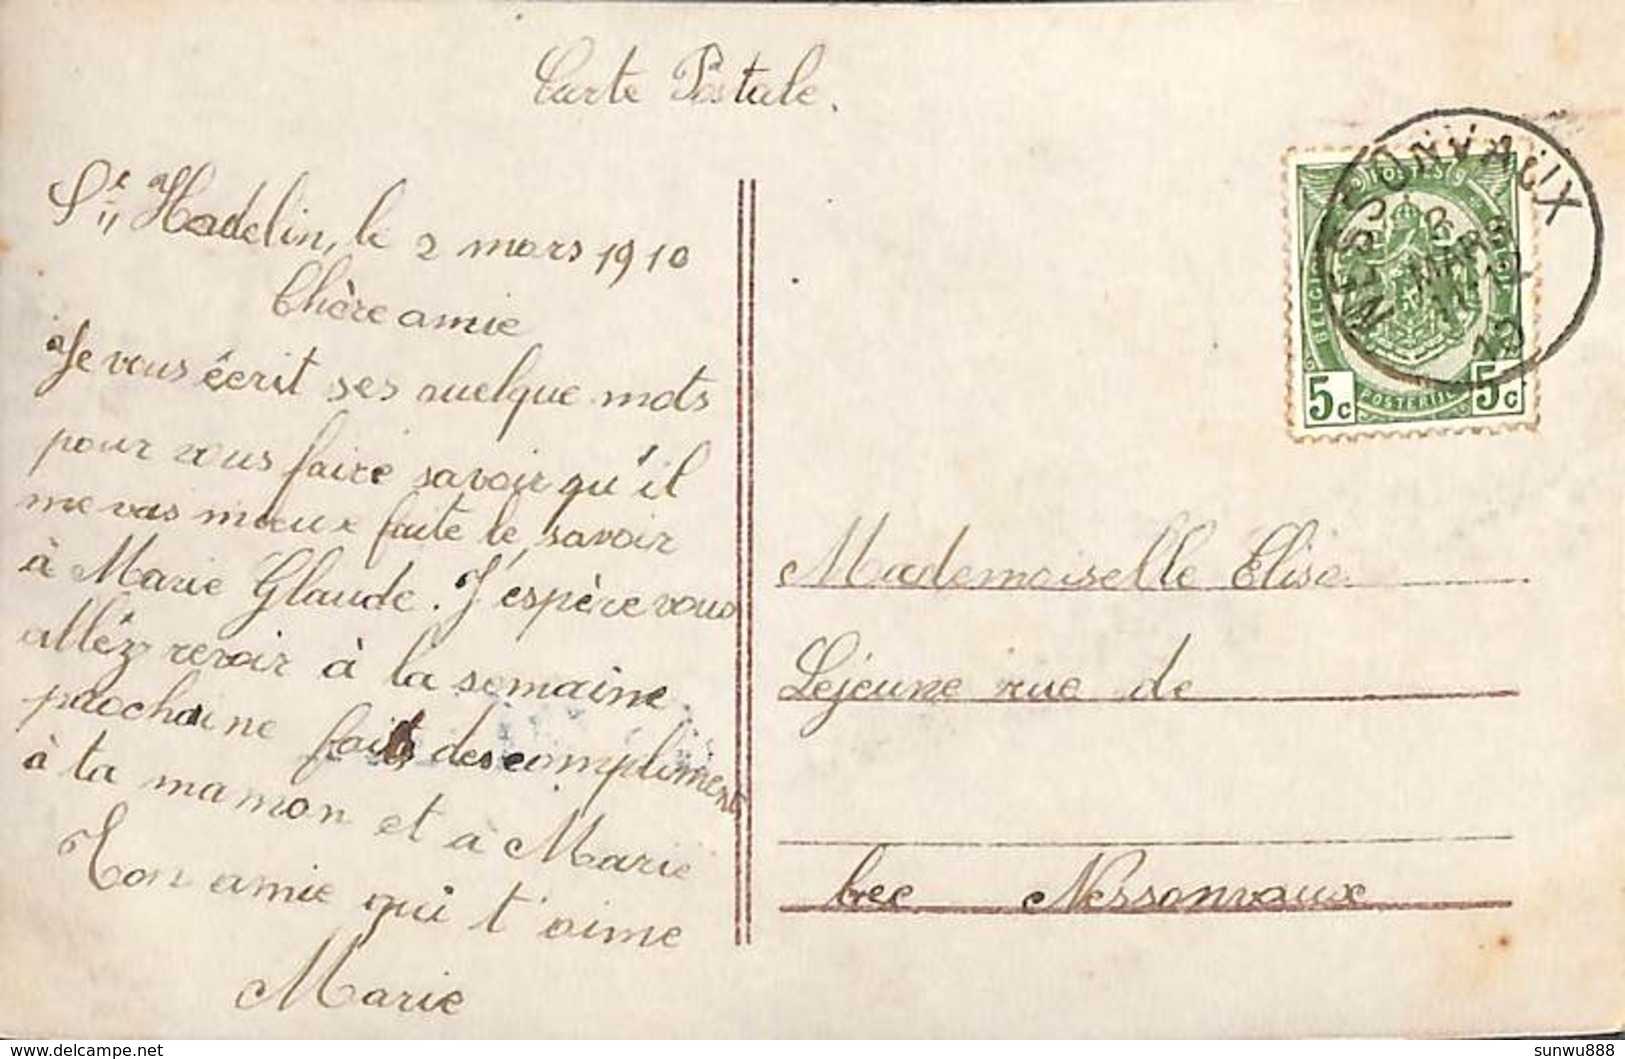 Carte Postale.
St Hadelin, le 2 mars 1910
Chère amie
Je vous écrit ses quelque mots
pour vous faire savoir qu'il
me vas mieux faite le savoir
à Marie Glaude. J'espère vous
alléz revoir à la semaine
prochaine faits des compliment
à ta maman et à Marie
Ton amie qui t'aime
Marie
NESSONVAUX
8
MARS
11
10
POSTES
BELGIQUE
POSTERIJEN
5c 5c
Mademoiselle Elise
Lejeune rue de
bec Nessonvaux
delcampe.net
sunwu888